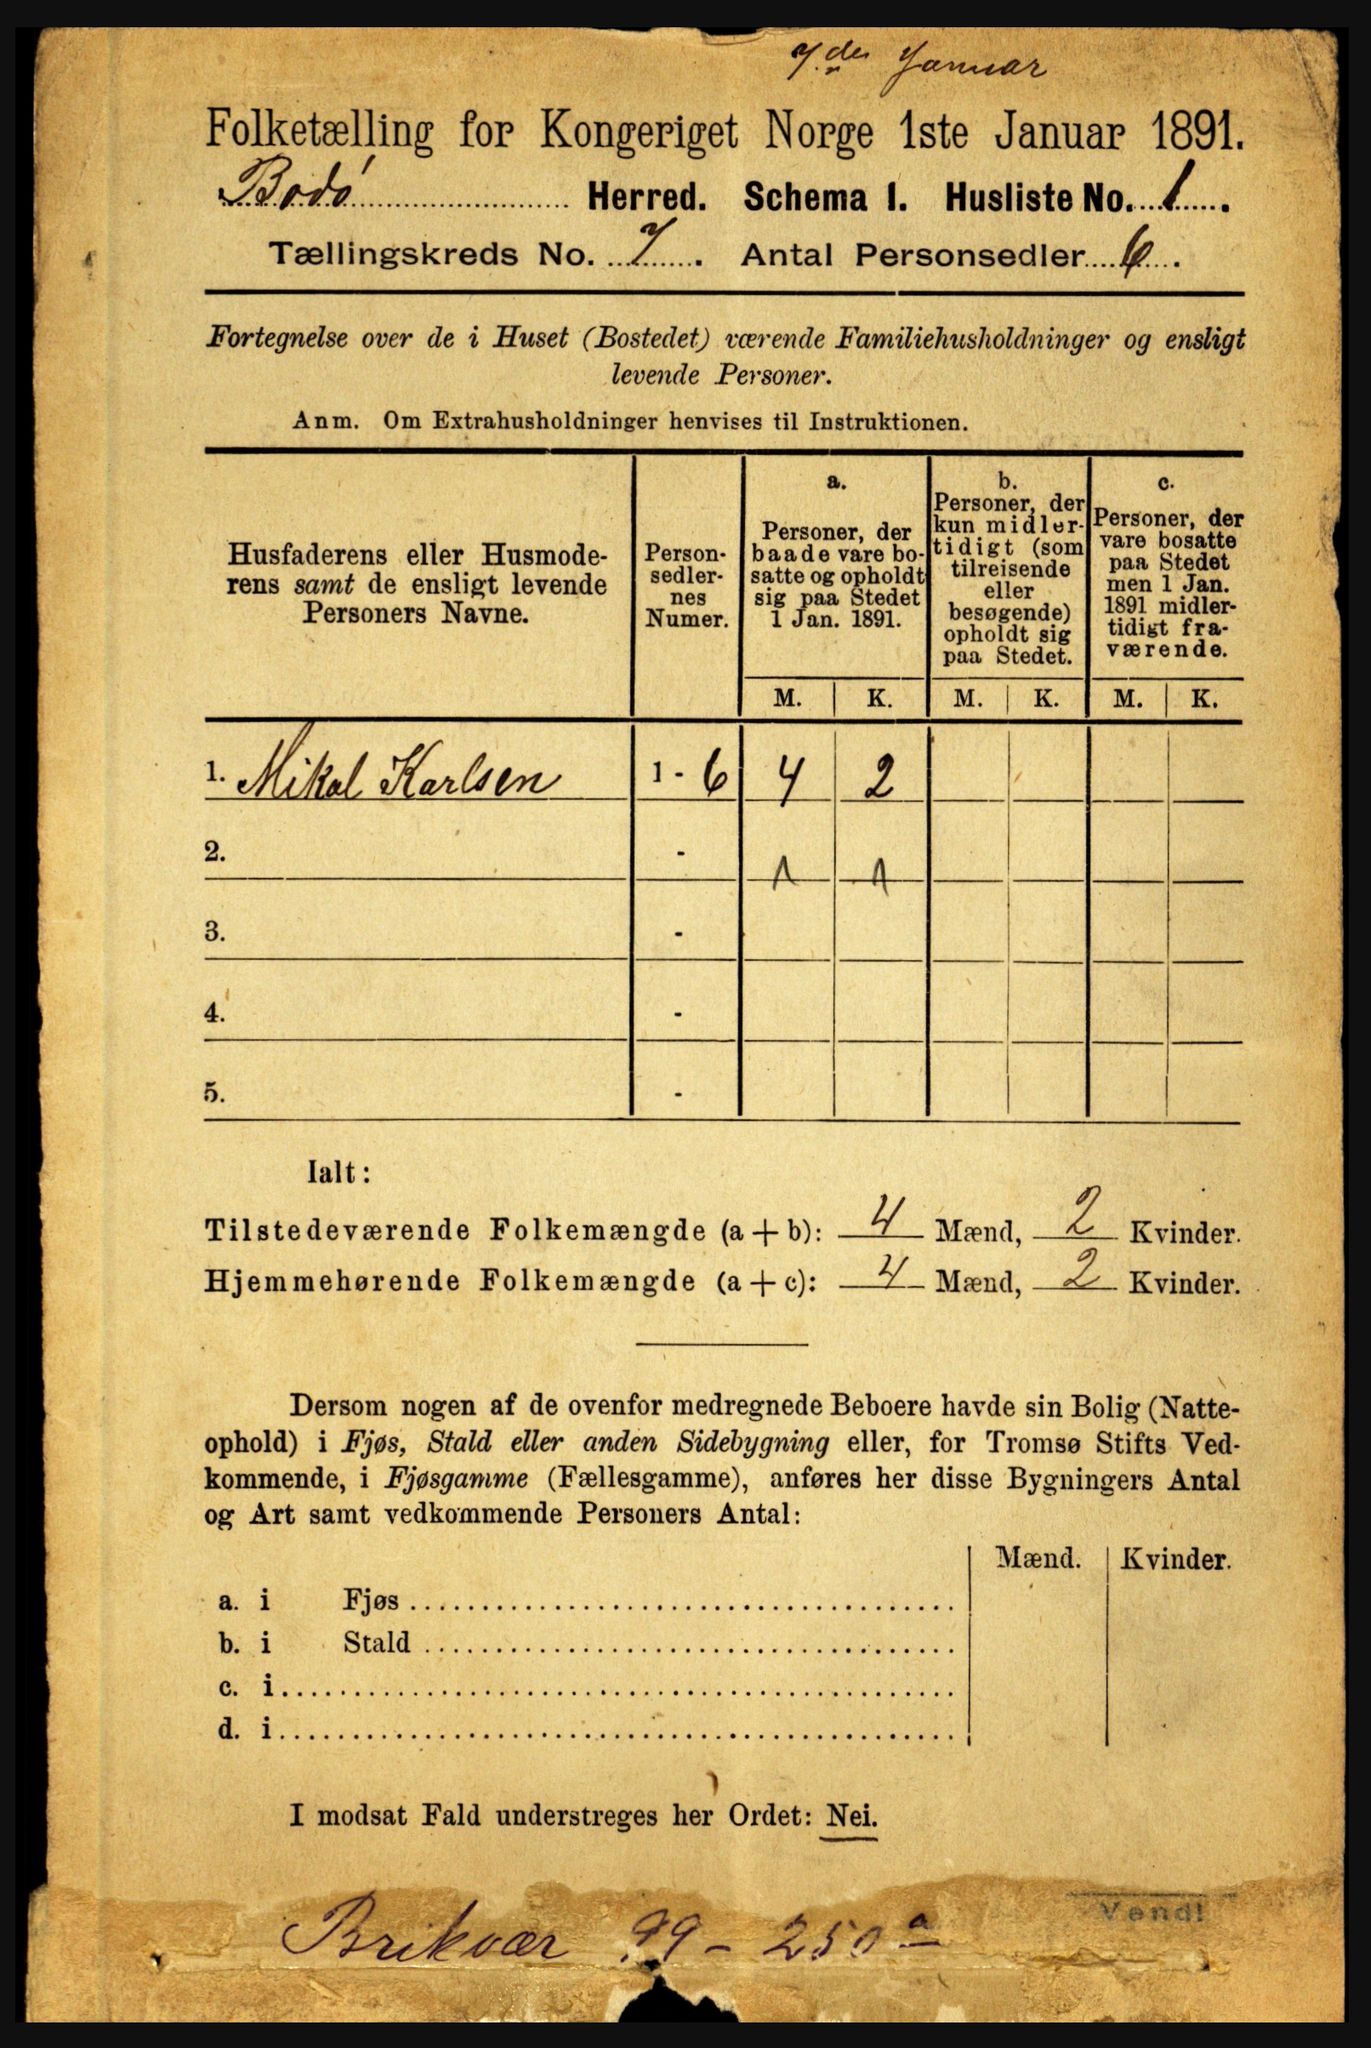 7de Januar
Folketælling for Kongeriget Norge 1ste Januar 1891.
Bodø Herred. Schema 1. Husliste No. 1.
Tællingskreds No. 7. Antal Personsedler 6.
Fortegnelse over de i Huset (Bostedet) værende Familiehusholdninger og ensligt
levende Personer.
Anm. Om Extrahusholdninger henvises til Instruktionen.
Husfaderens eller Husmode-
rens samt de ensligt levende
Personers Navne.
Person-
sedler-
nes
Numer.
a.
Personer, der
baade vare bo-
satte og opholdt
sig paa Stedet
1 Jan. 1891.
b.
Personer, der
kun midler-
tidigt (som
tilreisende
eller
besøgende)
opholdt sig
paa Stedet.
c.
Personer, der
vare bosatte
paa Stedet
men 1 Jan.
1891 midler-
tidigt fra-
værende.
M. K. M. K. M. K.
1. Mikal Karlsen 1 - 6 4 2
2. - 1 1
3. -
4. -
5. -
Ialt:
Tilstedeværende Folkemængde (a + b): 4 Mænd, 2 Kvinder.
Hjemmehørende Folkemængde (a + c): 4 Mænd, 2 Kvinder.
Dersom nogen af de ovenfor medregnede Beboere havde sin Bolig (Natte-
ophold) i Fjøs, Stald eller anden Sidebygning eller, for Tromsø Stifts Ved-
kommende, i Fjøsgamme (Fællesgamme), anføres her disse Bygningers Antal
og Art samt vedkommende Personers Antal:
Mænd. Kvinder.
a. i Fjøs
b. i Stald
c. i
d. i
I modsat Fald understreges her Ordet: Nei.
Vend!
Brikvær 99 - 250a